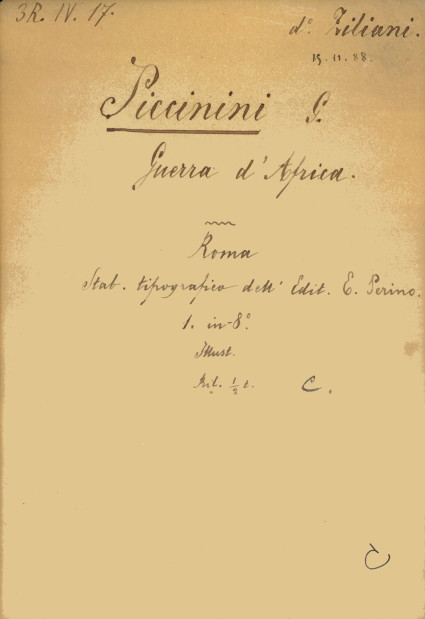 3R. IV. 17.
d.º Ziliani.
15.11.88.
Piccinini G.
Guerra d'Africa.
Roma
Stab. tipografico dell' Edit. E. Perino.
1. in-8º.
Illust.
Ril. ½ t. C.
C